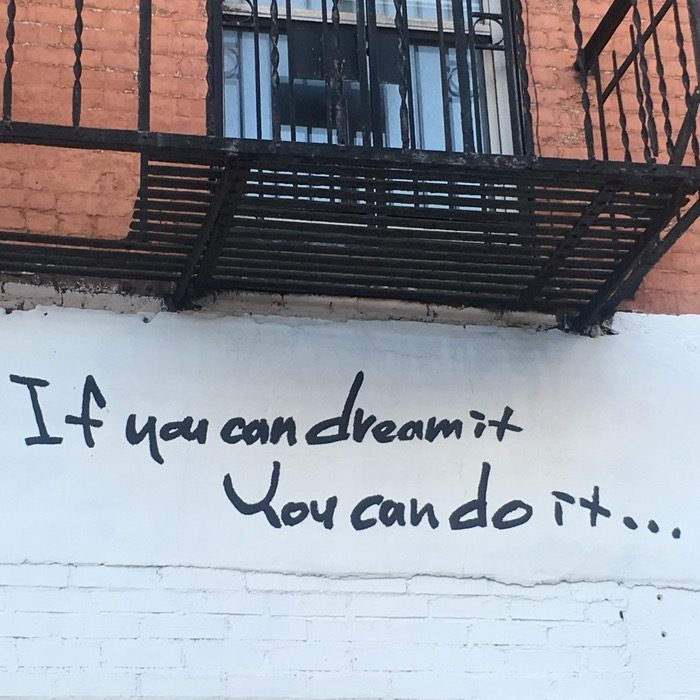 If you can dream it
You can do it...